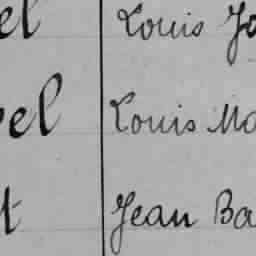 el Louis Jo
vel Louis Ma
t Jean Ba